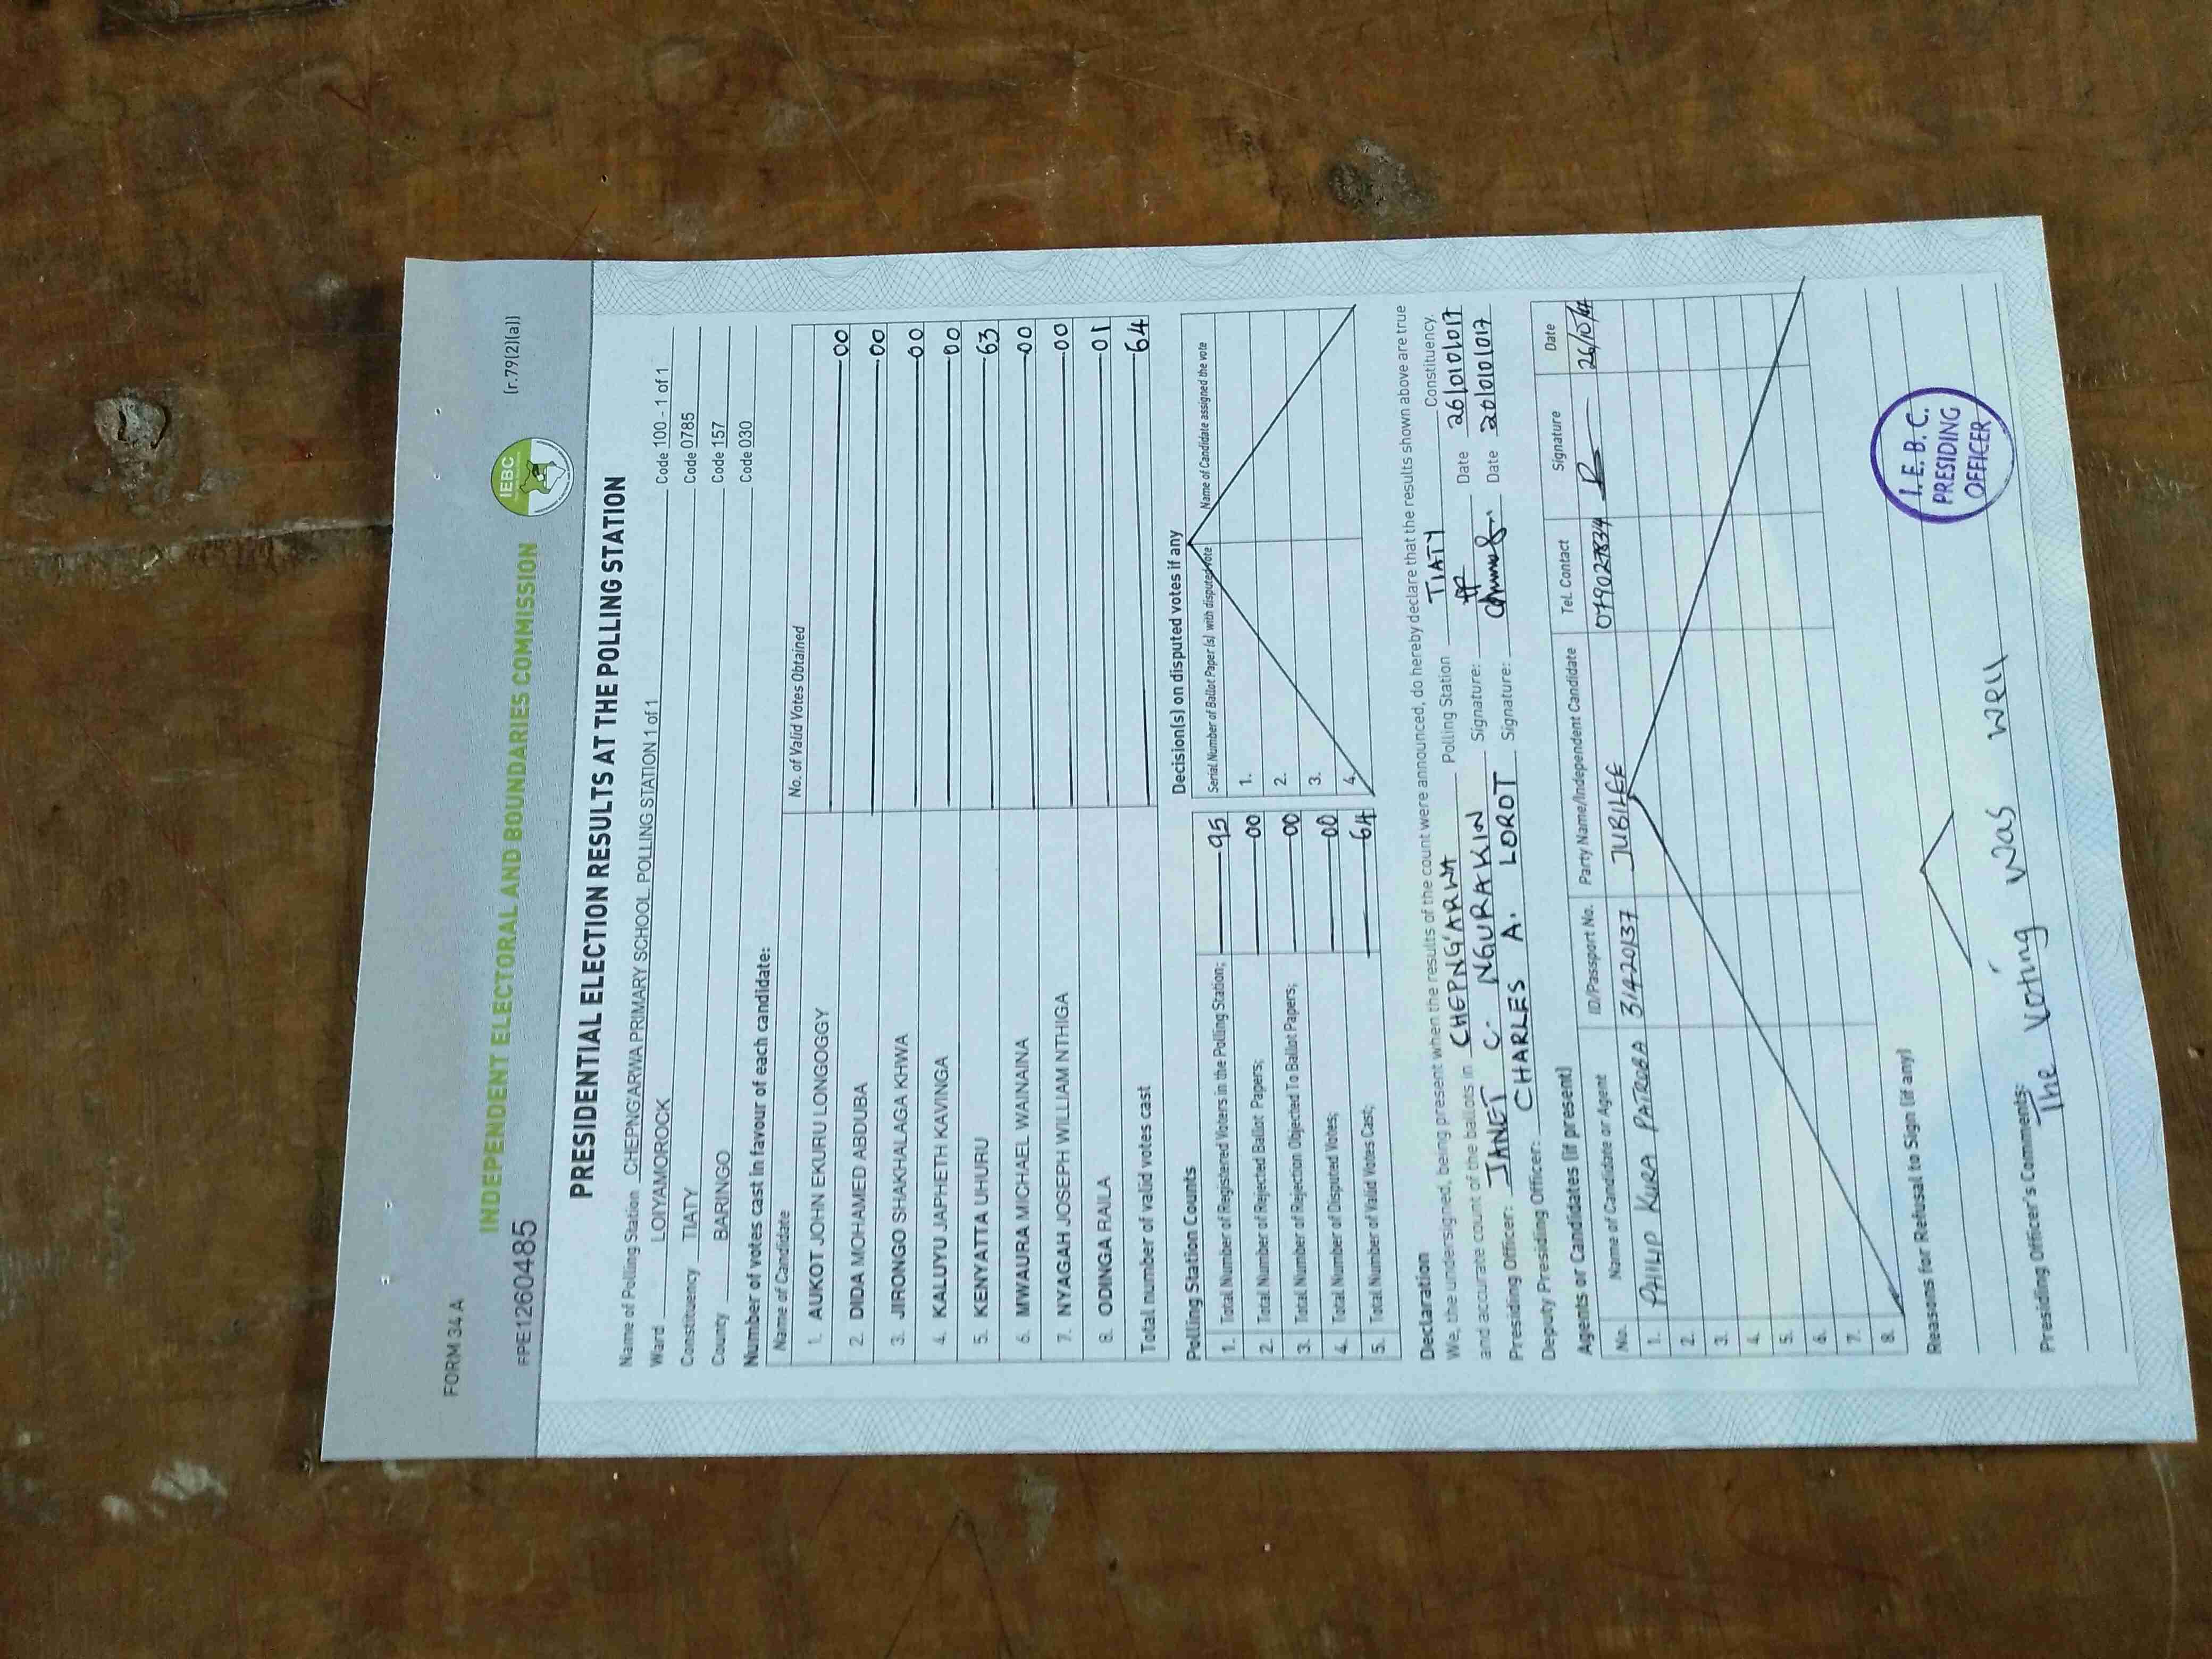 FORM 34 A
[r.79(2)(a)]
IEBC
INDEPENDENT ELECTORAL AND BOUNDARIES COMMISSION
PPE1260485
PRESIDENTIAL ELECTION RESULTS AT THE POLLING STATION
Name of Polling Station CHEPNG'ARWA PRIMARY SCHOOL. POLLING STATION 1 of 1 Code 100 - 1 of 1
Ward LOIYAMOROCK Code 0785
Constituency TIATY Code 157
County BARINGO Code 030
Number of votes cast in favour of each candidate:
Name of Candidate No. of Valid Votes Obtained
1. AUKOT JOHN EKURU LONGOGGY 00
2. DIDA MOHAMED ABDUBA 00
3. JIRONGO SHAKHALAGA KHWA 00
4. KALUYU JAPHETH KAVINGA 00
5. KENYATTA UHURU 63
6. MWAURA MICHAEL WAINAINA 00
7. NYAGAH JOSEPH WILLIAM NTHIGA 00
8. ODINGA RAILA 01
Total number of valid votes cast 64
Polling Station Counts
1. Total Number of Registered Voters in the Polling Station; 95
2. Total Number of Rejected Ballot Papers; 00
3. Total Number of Rejection Objected To Ballot Papers; 00
4. Total Number of Disputed Votes; 00
5. Total Number of Valid Votes Cast; 64
Decision(s) on disputed votes if any
Serial Number of Ballot Paper (s) with disputed vote Name of Candidate assigned the vote
1.
2.
3.
4.
Declaration
We, the undersigned, being present when the results of the count were announced, do hereby declare that the results shown above are true
and accurate count of the ballots in CHEPNG'ARWA Polling Station TIATY Constituency.
Presiding Officer: JANET C. NGURAKIN Signature: Date
Deputy Presiding Officer: CHARLES A. LOROT Signature: Date
Agents or Candidates (if present)
No. Name of Candidate or Agent ID/Passport No. Party Name/Independent Candidate Tel. Contact Signature Date
1. PHILIP KURA PATROBA 31420137 JUBILEE 0790278344 26/10/17
2.
3.
4.
5.
6.
7.
8.
Reasons for Refusal to Sign (if any)
I.E.B.C.
PRESIDING
OFFICER
Presiding Officer's Comments:
The voting was well